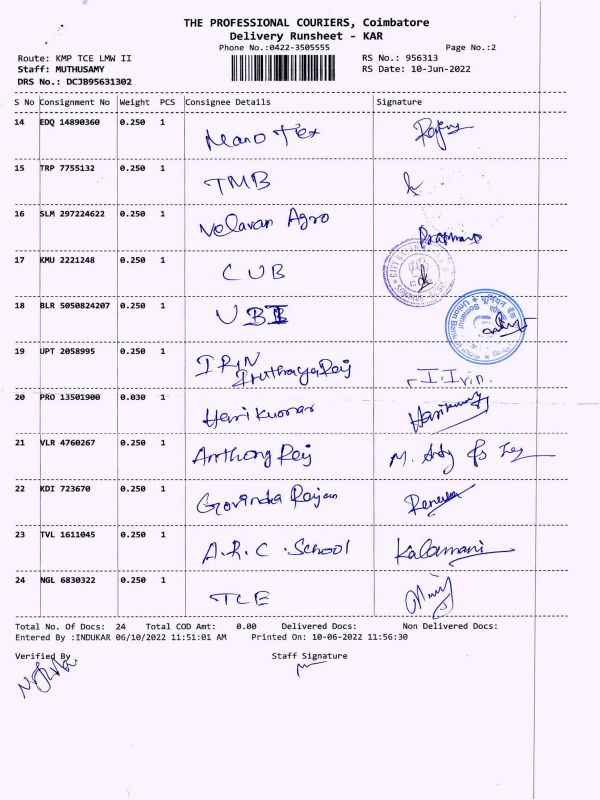 THE PROFESSIONAL COURIERS, Coimbatore
Delivery Runsheet - KAR
Phone No.:0422-3505555 Page No.:2
Route: KMP TCE LMW II RS No.: 956313
Staff: MUTHUSAMY RS Date: 10-Jun-2022
DRS No.: DCJB95631302
S No Consignment No Weight PCS Consignee Details Signature
14 EDQ 14890360 0.250 1
Nano Tex
15 TRP 7755132 0.250 1
TMB
16 SLM 297224622 0.250 1
Velavan Agro
17 KMU 2221248 0.250 1
CUB
18 BLR 5050824207 0.250 1
UBI
यूनियन बैंक
Union Bank
19 UPT 2058995 0.250 1
IRIN
IruthayaRaj I. Irin.
20 PRO 13501900 0.030 1
Hari Kumar Harikumar
21 VLR 4760267 0.250 1
Anthony Raj
22 KDI 723670 0.250 1
Govinda Rajan
23 TVL 1611045 0.250 1
A.R.C. School Kalamani
24 NGL 6830322 0.250 1
TCE
Total No. Of Docs: 24 Total COD Amt: 0.00 Delivered Docs: Non Delivered Docs:
Entered By :INDUKAR 06/10/2022 11:51:01 AM Printed On: 10-06-2022 11:56:30
Verified By Staff Signature